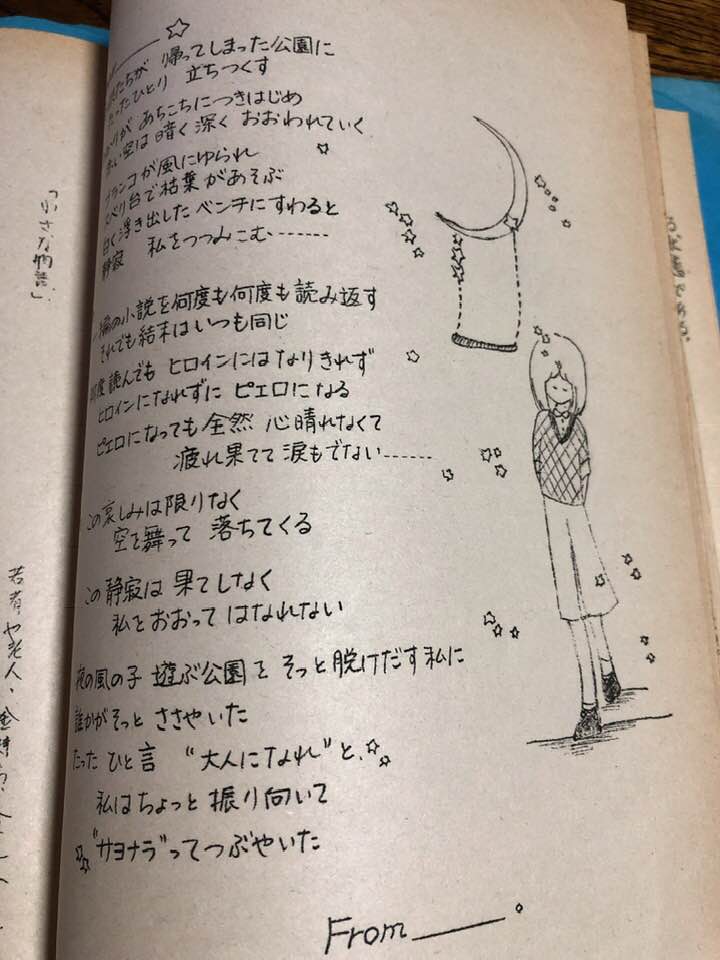 たちが 帰ってしまった公園に
たったひとり 立ちつくす
あちこちにつきはじめ
空は暗く深く おおわれていく
ブランコが風にゆられ
スベリ台で枯葉があそぶ
白く浮き出したベンチにすわると
静寂 私をつつみこむ‥‥‥‥
一編の小説を何度も何度も読み返す
それでも結末はいつも同じ
何度読んでも ヒロインにはなりきれず
ヒロインになれずに ピエロになる
ピエロになっても全然 心晴れなくて
疲れ果てて涙もでない‥‥‥‥
この哀しみは限りなく
空を舞って 落ちてくる
この静寂は 果てしなく
私をおおって はなれない
夜の風の子 遊ぶ公園を そっと脱けだす私に
誰かがそっと ささやいた
たった ひと言 “大人になれ”と、
私はちょっと 振り向いて
“サヨナラ”ってつぶやいた
From
「小さな物語」
若者や老人、金持
である。